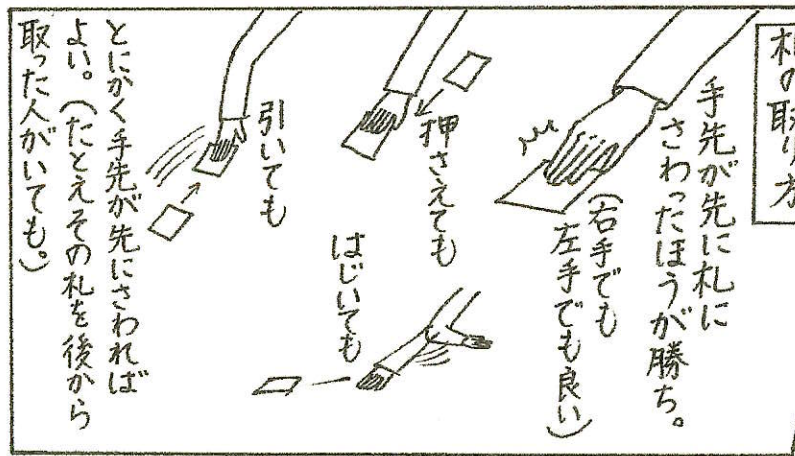 札の取り方
手先が先に札に
さわったほうが勝ち。
（右手でも
左手でも良い）
押さえても
はじいても
引いても
とにかく手先が先にさわれば
よい。（たとえその札を後から
取った人がいても。）